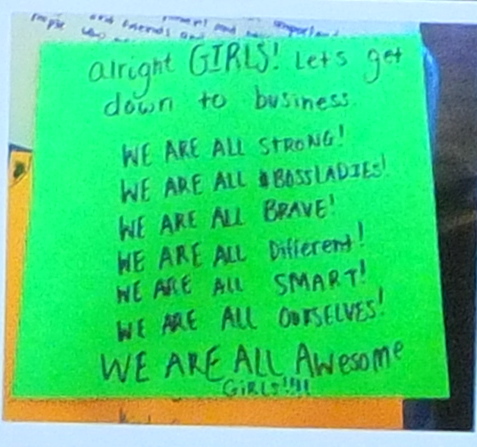 and friends and
alright GIRLS! Let's get
down to business.
WE ARE ALL STRONG!
WE ARE ALL BOSSLADIES!
WE ARE ALL BRAVE!
WE ARE ALL Different!
WE ARE ALL SMART!
WE ARE ALL OURSELVES!
WE ARE ALL AWesome
GIRLS!!!!